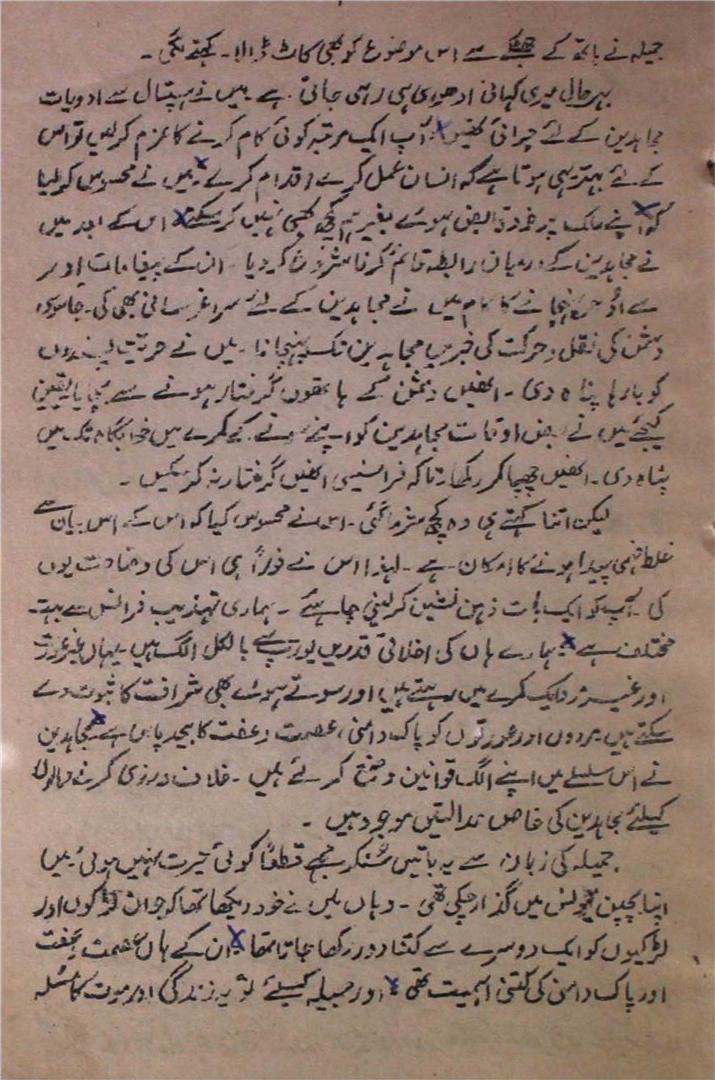 جمیلہ نے ہاتھ کے جھٹکے سے اس موضوع کو بھی کاٹ ڈالا۔ کہنے لگی۔
بہرحال میری کہانی ادھوری ہی رہی جاتی ہے۔ میں نے ہسپتال سے ادویات
مجاہدین کے لئے چرائی تھیں۔ آپ ایک مرتبہ کوئی کام کرنے کا عزم کرلیں تو اس
کے لئے بہتر یہی ہوتا ہے کہ انسان عمل کرے اقدام کرے۔ میں نے محسوس کرلیا
کہ اپنے ملک پر خود قابض ہوئے بغیر ہم کچھ بھی نہیں کرسکتے۔ اس کے بعد میں
نے مجاہدین کے درمیان رابطہ قائم کرنا شروع کردیا۔ ان کے پیغامات ادھر
سے ادھر پہنچانے کا کام میں نے مجاہدین کے لئے سراغرسانی بھی کی۔ جاسوسی
دشمن کی نقل و حرکت کی خبریں مجاہدین تک پہنچانا۔ میں نے حریت پسندوں
کو بارہا پناہ دی۔ انھیں دشمن کے ہاتھوں گرفتار ہونے سے بچایا یقین
کیجئے میں نے بعض اوقات مجاہدین کو اپنے سونے کے کمرے میں خوابگاہ تک میں
پناہ دی۔ انھیں چھپا کر رکھا، تاکہ فرانسیسی انھیں گرفتار نہ کرسکیں۔
لیکن اتنا کہتے ہی وہ کچھ شرما گئی۔ اس نے محسوس کیا کہ اس کے اس بیان سے
غلط فہمی پیدا ہونے کا امکان ہے۔ لہذا اس نے فوراً ہی اس کی وضاحت یوں
کی۔ آپ کو ایک بات ذہن نشین کرلینی چاہئے۔ ہماری تہذیب فرانس سے بہت
مختلف ہے۔ ہمارے ہاں کی اخلاقی قدریں یورپ سے بالکل الگ ہیں۔ یہاں غیر عورت
اور غیر مرد ایک کمرے میں رہتے ہیں اور سوتے ہوئے بھی شرافت کا ثبوت دے
سکتے ہیں۔ مردوں اور عورتوں کو پاک دامنی، عصمت و عفت کا بیحد پاس ہے۔ مجاہدین
نے اس سلسلے میں اپنے الگ قوانین وضع کرلئے ہیں۔ خلاف ورزی کرنے والوں
کیلئے مجاہدین کی خاص عدالتیں موجود ہیں۔
جمیلہ کی زبان سے یہ باتیں سنکر مجھے قطعاً کوئی حیرت نہیں ہوئی۔ میں
اپنا بچپن تیونس میں گذار چکی تھی۔ وہاں میں نے خود دیکھا تھا کہ جوان لڑکوں اور
لڑکیوں کو ایک دوسرے سے کتنا دور رکھا جاتا تھا۔ ان کے ہاں عصمت، عفت
اور پاک دامنی کی کتنی اہمیت تھی۔ اور جمیلہ کیلئے تو یہ زندگی اور موت کا مسئلہ